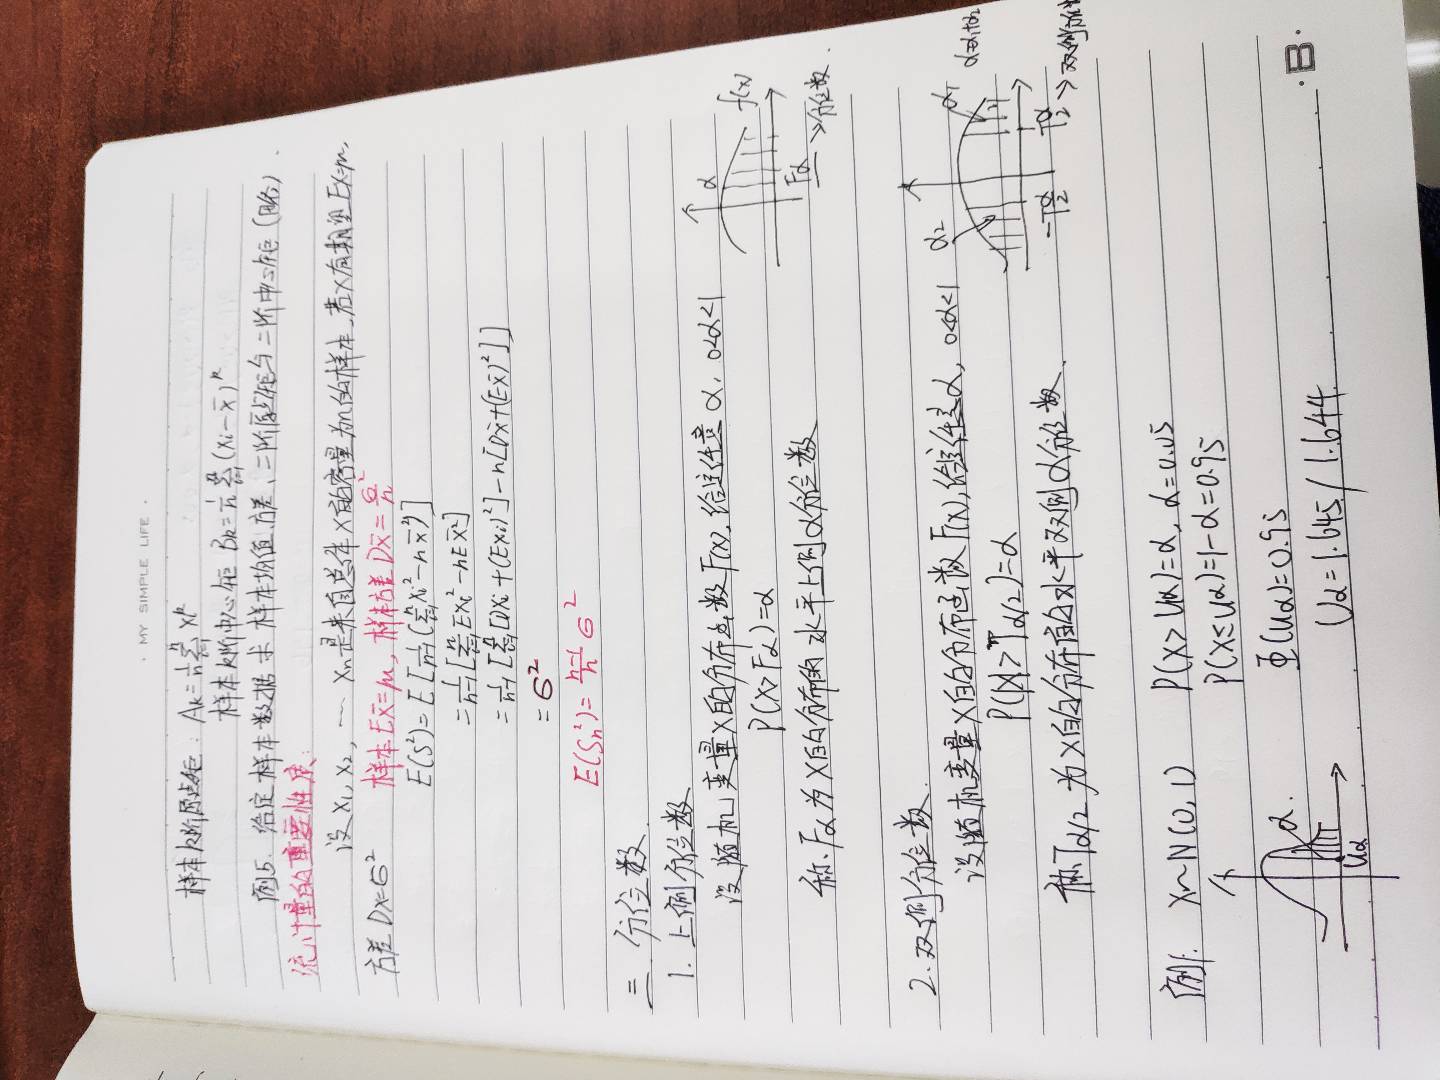 · MY SIMPLE LIFE ·
样本k阶原点矩: Aₖ=1/n ∑ᵢ₌₁ⁿ Xᵢᵏ
样本k阶中心矩 Bₖ=1/n ∑ᵢ₌₁ⁿ (Xᵢ-X̄)ᵏ
例5. 给定样本数据求 样本均值、方差、二阶原点矩与二阶中心矩(略).
统计量的重要性质:
设X₁, X₂, … Xₙ是来自总体X的容量为n的样本, 若X有期望EX=μ,
方差DX=σ² 样本EX̄=μ, 样本方差DX̄=σ²/n
E(S²)=E[1/(n-1) (∑ᵢ₌₁ⁿ Xᵢ²-nX̄²)]
=1/(n-1) [∑ᵢ₌₁ⁿ EXᵢ²-nEX̄²]
=1/(n-1) [∑ᵢ₌₁ⁿ [DXᵢ+(EXᵢ)²]-n[DX̄+(EX̄)²]]
=σ²
E(Sₙ²)=(n-1)/n σ²
三 分位数.
1. 上侧分位数
设随机变量X的分布函数F(x), 给定任意α, 0<α<1
P(X>Fα)=α
称Fα为X的分布的水平上侧α分位数
α
f(x)
Fα
→分位数.
2.双侧分位数.
设随机变量X的分布函数F(x), 给定任意α, 0<α<1
P(|X|>Tα/2)=α
称Tα/2为X的分布的水平双侧α分位数.
α₂
α₁
α=α₁+α₂
-Tα/2
Tα/2
→双侧分位数
例1. X~N(0,1) P(X>Uα)=α, α=0.05
P(X≤Uα)=1-α=0.95
Φ(Uα)=0.95
Uα=1.645/1.644
α.
Uα
·B·